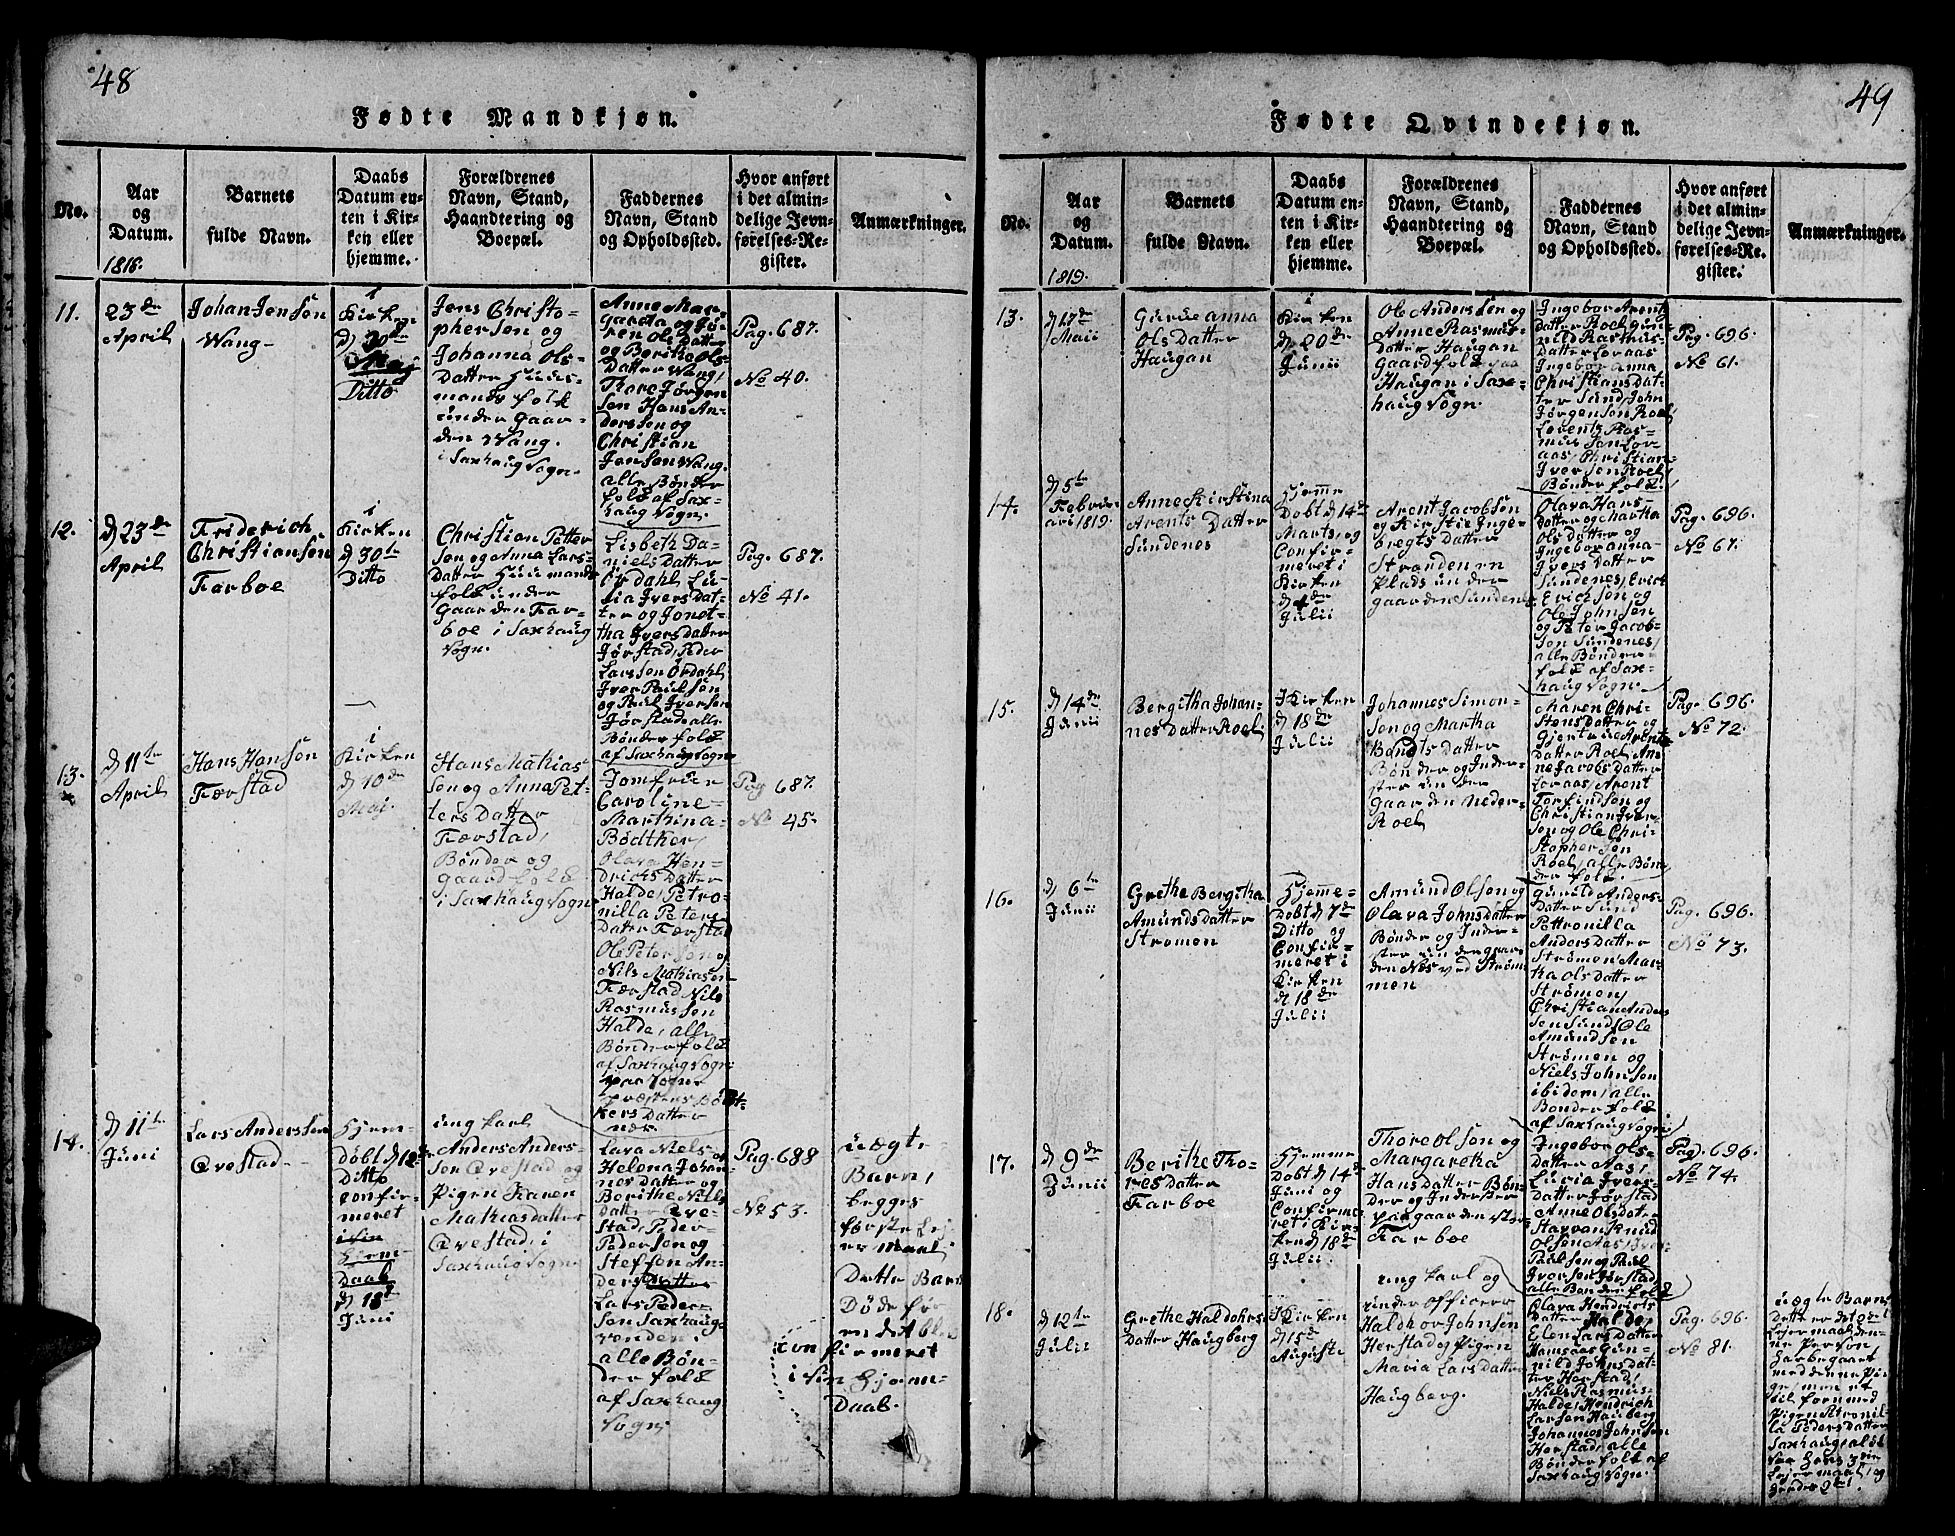 48
Fødte Mandkjøn.
No.
Aar
og
Datum.
1816.
Barnets
fulde Navn.
Daabs
Datum en-
ten i Kir-
ken eller
hjemme.
Forældrenes
Navn, Stand,
Haandtering og
Boepæl.
Faddernes
Navn, Stand
og Opholdssted.
Hvor anført
i det almin-
delige Jevn-
førelses-Re-
gister.
Anmærkninger.
11.
23de
April
Johan Jensön
Wang
i
Kirken
d 30te
Maj
Ditto
Jens Christo-
phersen og
Johanna Ols-
Datter Huus-
mands folk
under Gaar-
den Wang.
i Saxhaug Sogn.
Anne Mar-
gareta og Gü-
ren Ols Datter
og Berithe Ols-
Datter Wang,
Thore Jørgen
Sen Hans An-
dersen og
Christian
Jensen Wang.
alle Bønder
folk af Sax-
haug Sogn.
Pag. 687.
No 40.
12.
d 23de
April
Friderich
Christiansen
Farboe
i
Kirken
d 30te
Ditto
Christian Petter
Sen og Anna Lars-
Datter Huusmands
folk under
Gaarden Far-
boe i Saxhaug
Sogn.
Lisbeth Da-
niels Datter
Ördahl, Lu-
sia Ivers Dat-
ter og Jonet-
tha Ivers Datter
Jørstad, Peder
Larsen Ördahl,
Iver Paulsen
og Paul Iversen
Jørstad alle
Bønder folk
af Saxhaug Sogn
Pag. 687.
No 41.
13.
d 11te
April
Hans Hansen
Færstad
i
Kirken
d 10de
Maj.
Hans Mathias
Sen og Anna Pet-
ters Datter
Færstad,
Bønder og
Gaardfolk
i Saxhaug Sogn
Jomfrue
Caroline
Marthina
Bödtker,
Olava Hen-
drichs Datter
Halde, Petro-
nilla Peters
Datter Færstad
Ole Petersen og
Nils Mathiasen
Færstad Nils
Rasmussen
Halde, alle
Bønder folk
af Saxhaug Sogn
paa Sogne
præstens Bödt-
kers Datter
nær.
Pag 687.
No 45.
14.
d 11te
Juni
Lars Andersen
Qvestad
Hjem-
Døbt d 12de
Ditto
confir-
meret
i sin
Hjem-
Daab
d 18de
Juni
ung karl
Anders Anders-
Sen Qvestad og
Pigen Karen
Mathias datter
Qvestad, i
Saxhaug Sogn
Lava Niels-
Helena Johan-
nes Datter og
Berithe Niels
Datter Qve-
stad, Peder
Pedersen og
Steffen An-
ders Datter
Lars Peder-
Sen Saxhaug
vonden,
alle Bøn-
der folk
af Saxhaug
Sogn
Pag. 688
No 53.
uægte
Barn,
begges
første Lej-
ermaal
Dette Barn
Døde før-
en det blev
con firmeret
i sin Hjem-
Daab.
49
Fødte Qvindekjøn.
No.
Aar
og
Datum.
1819.
Barnets
fulde Navn.
Daabs
Datum en-
ten i Kir-
ken eller
hjemme.
Forældrenes
Navn, Stand,
Haandtering og
Boepæl.
Faddernes
Navn, Stand
og Opholdssted.
Hvor anført
i det almin-
delige Jevn-
førelses-Re-
gister.
Anmærkninger.
13.
d 17de
Maii
Gurue anna
Ols Datter
Haugan
i
Kirken
d 20de
Junii
Ole Andersen og
Anne Rasmus-
Datter Haugan
Gaardfolk paa
Haugan i Sax-
haug Sogn.
Ingebor Arents
Datter Roel Gun-
nild Rasmus-
Datter Lovaas
Ingebor anna
Christians Dat-
ter Sund, John
Jørgensen Roel,
Lorents Ras-
mus Sen Lov-
aas, Christian
Iver Sen Roel,
Bønder folk.
Pag. 696.
No 61.
14.
d 5te
Febru-
ari 1819.
Anne Kirstina
Arents Datter
Sundenes
Hjeme
Døbt d 14de
Marts, og
Confir-
meret i
Kirken
d 4de
Julii
Arent Jacobsen
og Kirstie Inge-
bregts Datter
Stranden en
Plads under
gaarden Sundenes
Olava Hans
Datter og Martha
Ols Datter og
Ingebor anna
Ivers Datter
Sundenes, Erick
Erich Sen og
Ole John Sen
og Peter Jacob-
Sen Sundenes,
alle Bønder-
folk af Sax-
haug Sogn.
Pag. 696.
No 67.
15.
d 14de
Junii
Bergitha Johan-
nes Datter Roel
I Kirken
d 18de
Julii
Johannes Simon-
Sen og Martha
Bendts Datter
Bønder og Inder-
ster under
Gaarden Neder-
Roel
Maren Chri-
stens Datter og
Gjertrue Arents
Datter Roel, An-
ne Jacobs Datter
Lovaas, Arent
Torfindsen og
Christian Iver-
Sen og Ole Chri-
stopher Sen
Roel, alle Bøn-
der folk.
Pag. 696.
No 72.
16.
d 6te
Junii
Grethe Bergitha
Amunds Datter
Strømen
Hjeme-
Døbt d 7de
Ditto og
Confir-
meret i
Kirken
d 18de
Julii
Amund Olsen og
Olava Johns datter
Bønder og Inder-
ster under gaar-
den Næs ved Strøm-
men
Guruld Anders-
Datter Sund
Pettronilla
Anders Datter
Strømen Mar-
tha Ols Datter
Strømen,
Christian Anders
Sen Sund, Ole
Amundsen
Strømen og
Niels Johnsen
ibidem, alle
Bønder folk
af Saxhaug Sogn
Pag. 696.
No 73.
17.
d 9de
Junii
Berithe Tho-
res Datter
Farboe
Hjemme
Døbt d 14de
Juni og
Confirme-
ret i Kirs-
ken d 18de
Julii
Thore Olsen og
Margaretha
Hans Datter Bøn-
der og Inderster
paa gaarden Store
Farboe
Ingebor Ols-
Datter Aas,
Lucia Ivers-
Datter Jørstad
Anne Ols Datter
Starvan Knud
Olsen Aas, Iver
Paulsen og Paul
Iversen Jørstad,
alle Bønder folk
Pag. 696.
No 74.
18.
d 12te
Julii
Grethe Haldohrs-
Datter Haugberg
I Kirken
d 15de
Augusti
ung karl og
under Officeer
Haldhor Johnsen
Herstad og Pigen
Maria Lars Datter
Haugberg.
Olava Hendrichs
Datter Halde,
Elen Lars Datter
Hamsaas Gun-
nild Johns Dat-
ter Herstad,
Niels Rasmus-
Halde, Hendrich
Larsen Hauberg
Johannes Johnsen
Herstad, alle
Bønder folk af
Saxhaug Sogn.
Pag. 696.
No 81.
uægte Barn,
Dette er det 2det
Lejermaal den-
ne Person,
har begaaet
med denne Pi-
ge, men et
til forn med
Pigen Petronil-
la Peders Datter
Saxhaug, altsaa
var hans 3die
Lejermaal, og
hendes 2det.